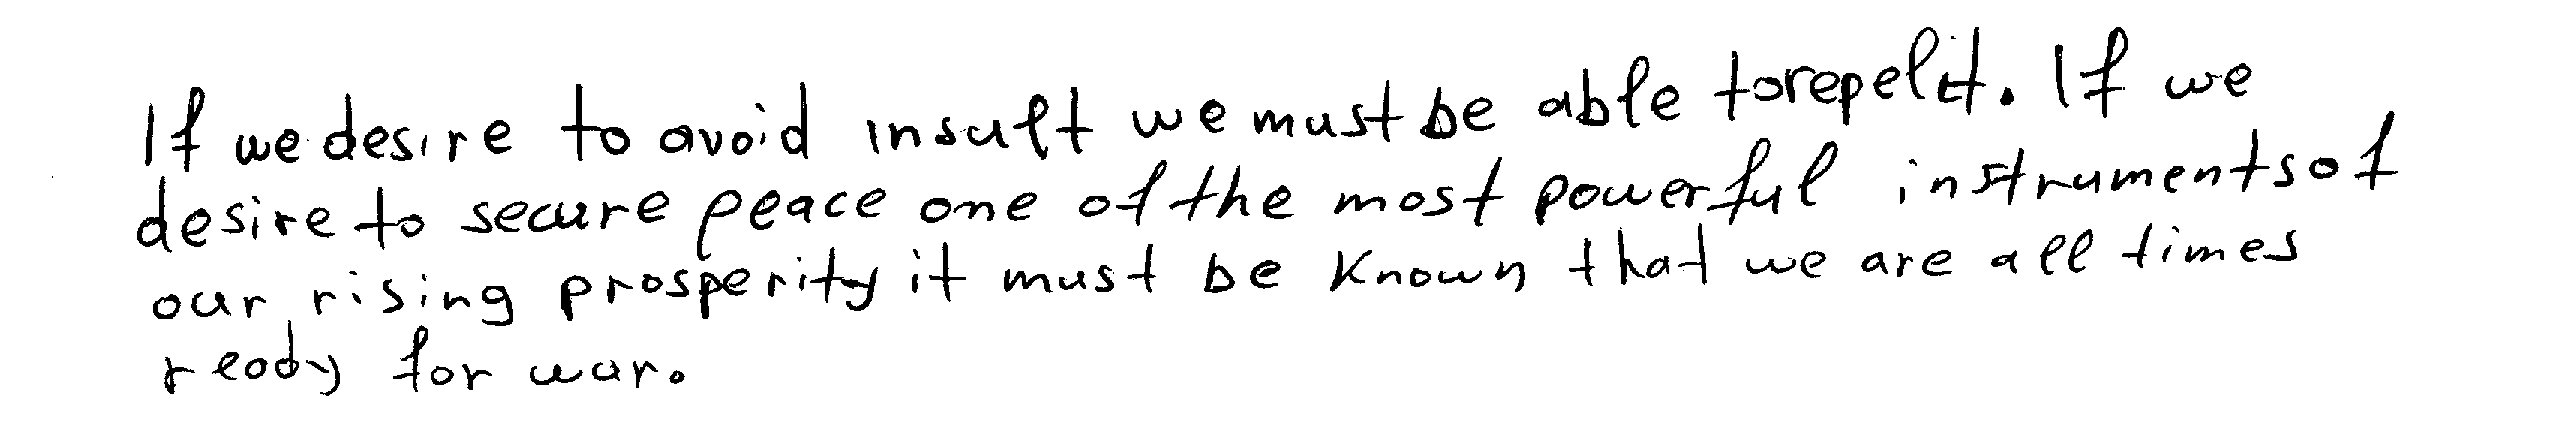 If we desire to avoid insult we must be able to repel it. If we
desire to secure peace one of the most powerful instruments of
our rising prosperity it must be known that we are all times
ready for war.